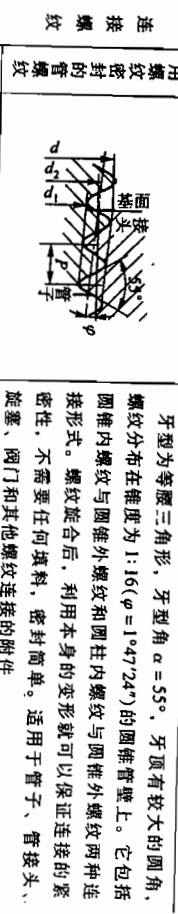 连接螺纹
用螺纹密封的管螺纹
接头
基面
55°
φ
管子
P
d1
d2
d
牙型为等腰三角形，牙型角 α=55°，牙顶有较大的圆角，
螺纹分布在锥度为1:16(φ=1°47′24″)的圆锥管壁上。它包括
圆锥内螺纹与圆锥外螺纹和圆柱内螺纹与圆锥外螺纹两种连
接形式。螺纹旋合后，利用本身的变形就可以保证连接的紧
密性，不需要任何填料，密封简单。适用于管子、管接头、
旋塞、阀门和其他螺纹连接的附件